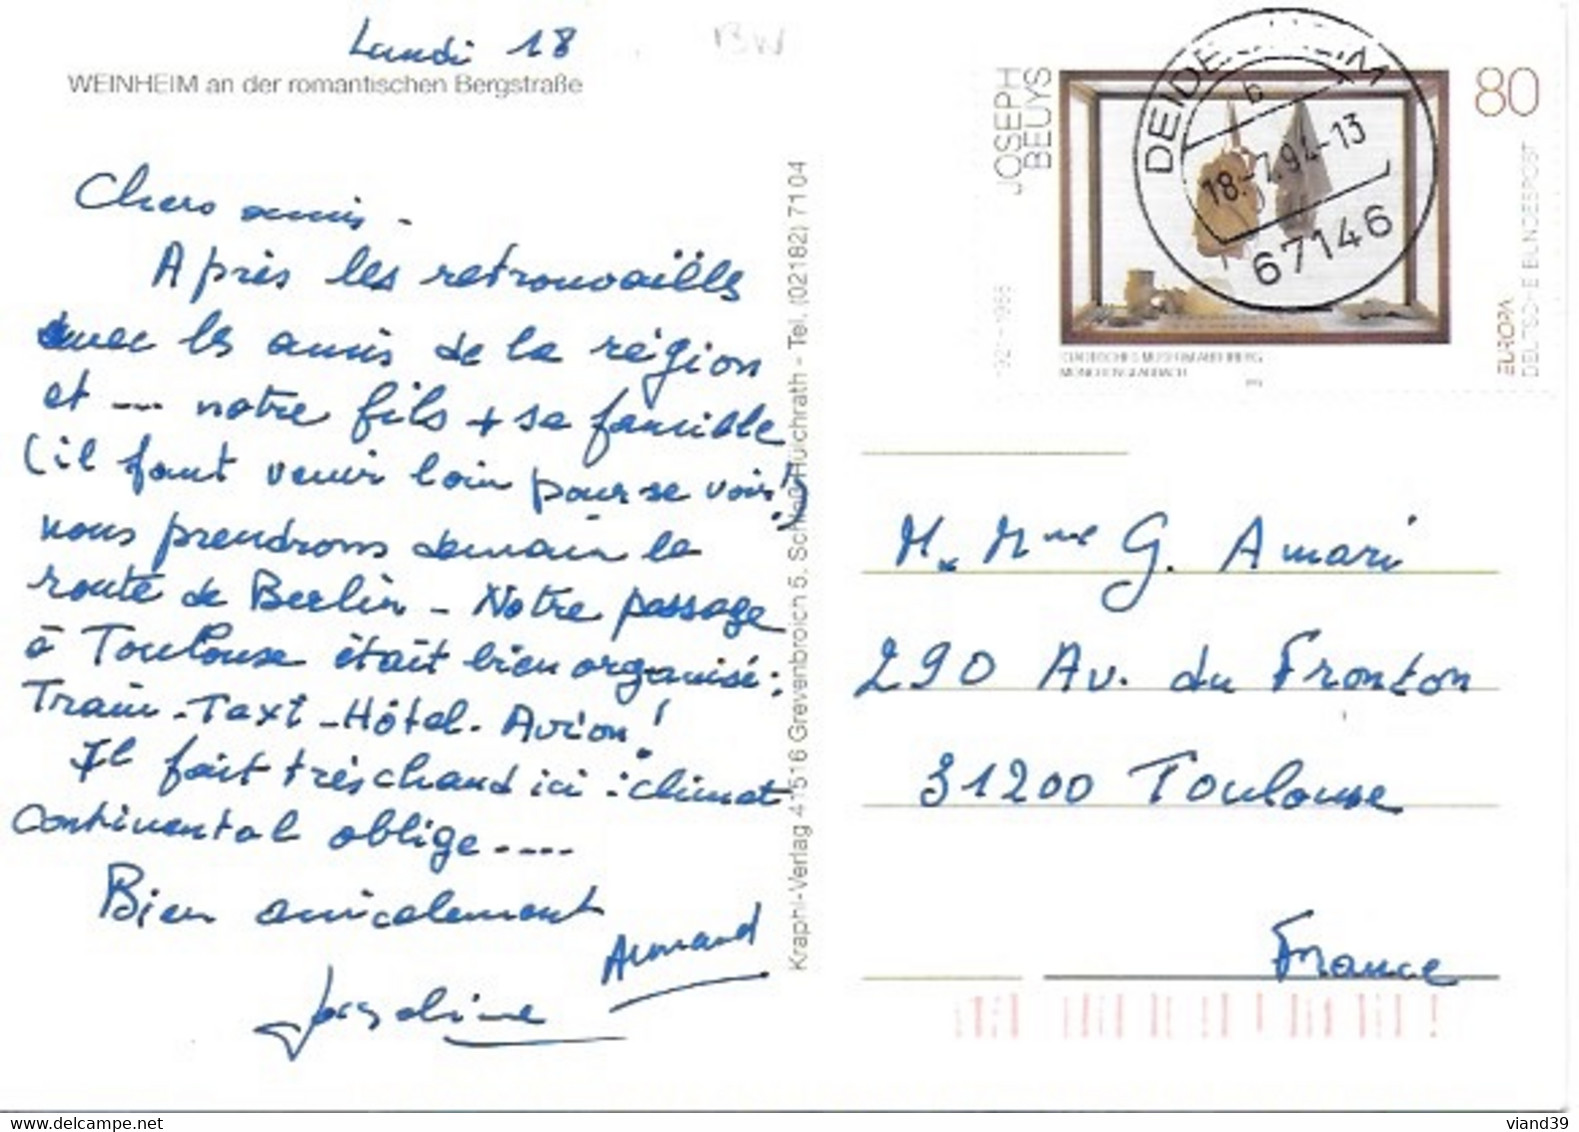 Lundi 18
BW
WEINHEIM an der romantischen Bergstraße
Chers amis -
Après les retrouvailles
avec les amis de la région
et --- notre fils + sa famille
(il faut venir loin pour se voir!)
nous prendrons demain la
route de Berlin - Notre passage
à Toulouse était bien organisé:
Train - Taxi - Hôtel - Avion!
Il fait très chaud ici : climat
continental oblige ----
Bien amicalement
Armand
Jacqueline
Kraphi-Verlag 41516 Grevenbroich 5, Schloß Hülchrath - Tel. (02182) 7104
JOSEPH
BEUYS
1921-1986
80
DEUTSCHE BUNDESPOST
EUROPA
MÖNCHENGLADBACH
b
18.-7.94-13
67146
M. Mme G. Amari
290 Av. du Fronton
31200 Toulouse
France
viand39